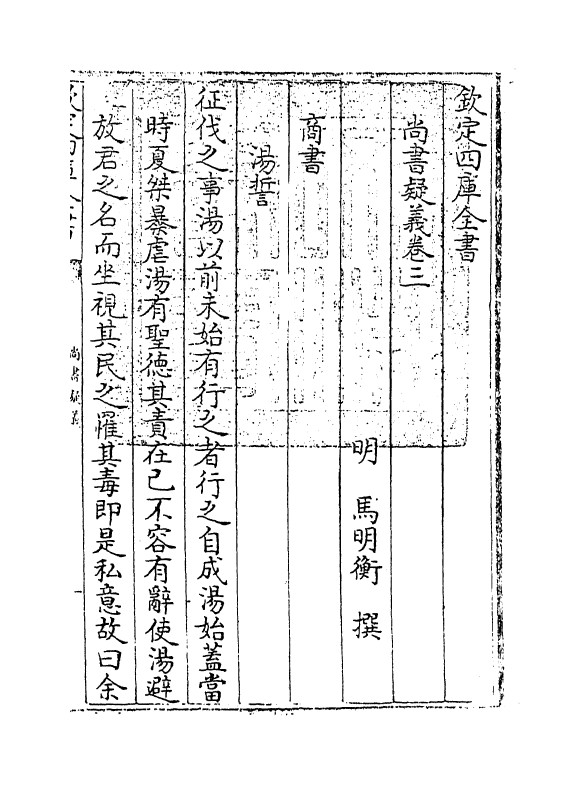 欽定四庫全書
尚書疑義卷三
明 馬明衡 撰
商書
湯誓
征伐之事湯以前未始有行之者行之自成湯始蓋當
時夏桀暴虐湯有聖德其責在己不容有辭使湯避
放君之名而坐視其民之罹其毒即是私意故曰余
尚書疑義